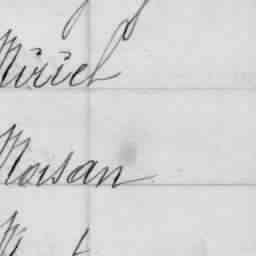 Miriel
Morsan